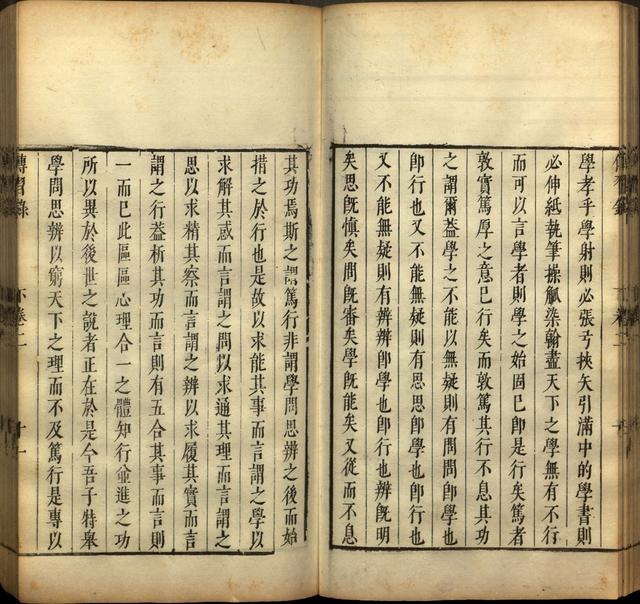 學孝乎學射則必張弓挾矢引滿中的學書則
必伸紙執筆操觚染翰盡天下之學無有不行
而可以言學者則學之始固已卽是行矣篤者
敦實篤厚之意已行矣而敦篤其行不息其功
之謂爾葢學之不能以無疑則有問問卽學也
卽行也又不能無疑則有思思卽學也卽行也
又不能無疑則有辨辨卽學也卽行也辨旣明
矣思旣慎矣問旣審矣學旣能矣又從而不息
其功焉斯之謂篤行非謂學問思辨之後而始
措之於行也是故以求能其事而言謂之學以
求解其惑而言謂之問以求通其理而言謂之
思以求精其察而言謂之辨以求履其實而言
謂之行葢析其功而言則有五合其事而言則
一而已此區區心理合一之體知行並進之功
所以異於後世之說者正在於是今吾子特舉
學問思辨以窮天下之理而不及篤行是專以
傳習錄 下卷二 十一